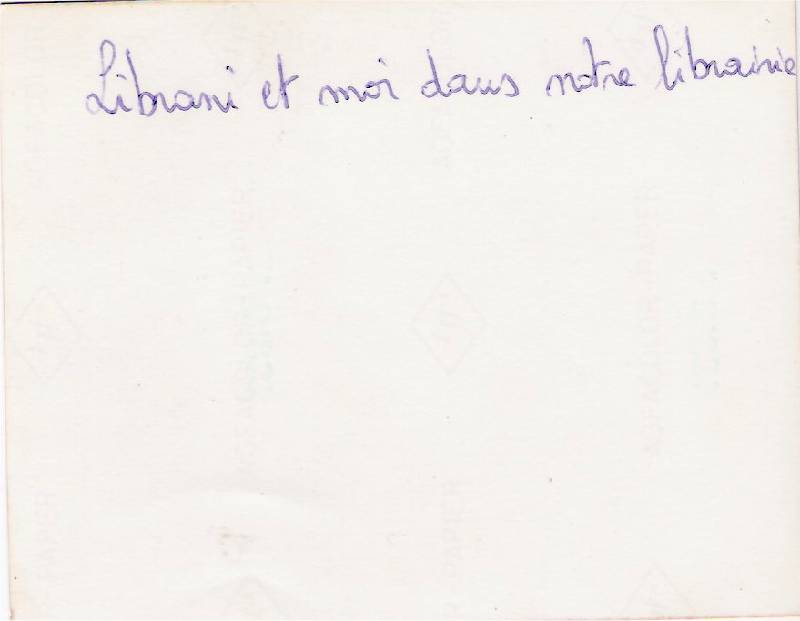 Librani et moi dans notre librairie